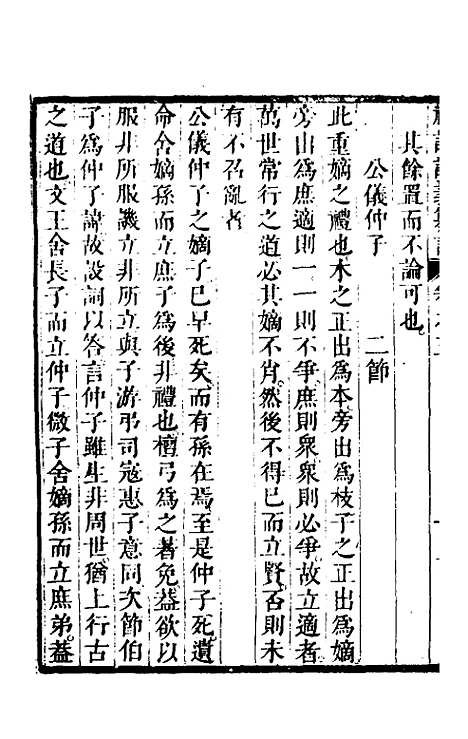 其餘置而不論可也
公儀仲子　二節
此重嫡之禮也木之正出為本旁出為枝子之正出為嫡
旁出為庶適則一一則不爭庶則衆衆則必爭故立適者
萬世常行之道必其嫡不肖然後不得已而立賢否則未
有不召亂者
公儀仲子之嫡子已早死矣而有孫在焉至是仲子死遺
命舍嫡孫而立庶子為後非禮也檀弓為之著免蓋欲以
服非所服譏立非所立與子游弔司寇惠子意同次節伯
子為仲子諱故設詞以答言仲子雖生非周世猶上行古
之道也文王舍長子而立仲子微子舍嫡孫而立庶弟蓋